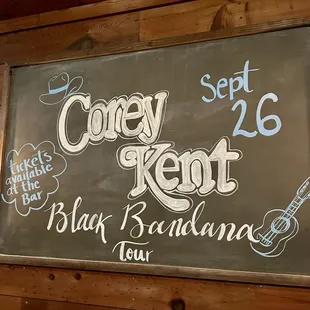 Corey
Kent
Sept
26
tickets
available
at the
Bar
Black Bandana
Tour